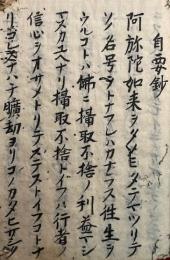 自要鈔
阿弥陀如来ヲタノミタテマツリテ
ソノ名号ヲトナフレハカナラス往生ヲ
ウルコトハ佛ニ摂取不捨ノ利益マシ
マスユヘナリ摂取不捨トイフハ行者ノ
信心ヲオサメトリテステストイフコトナ
リコレスナハチ曠劫ヨリコノカタ